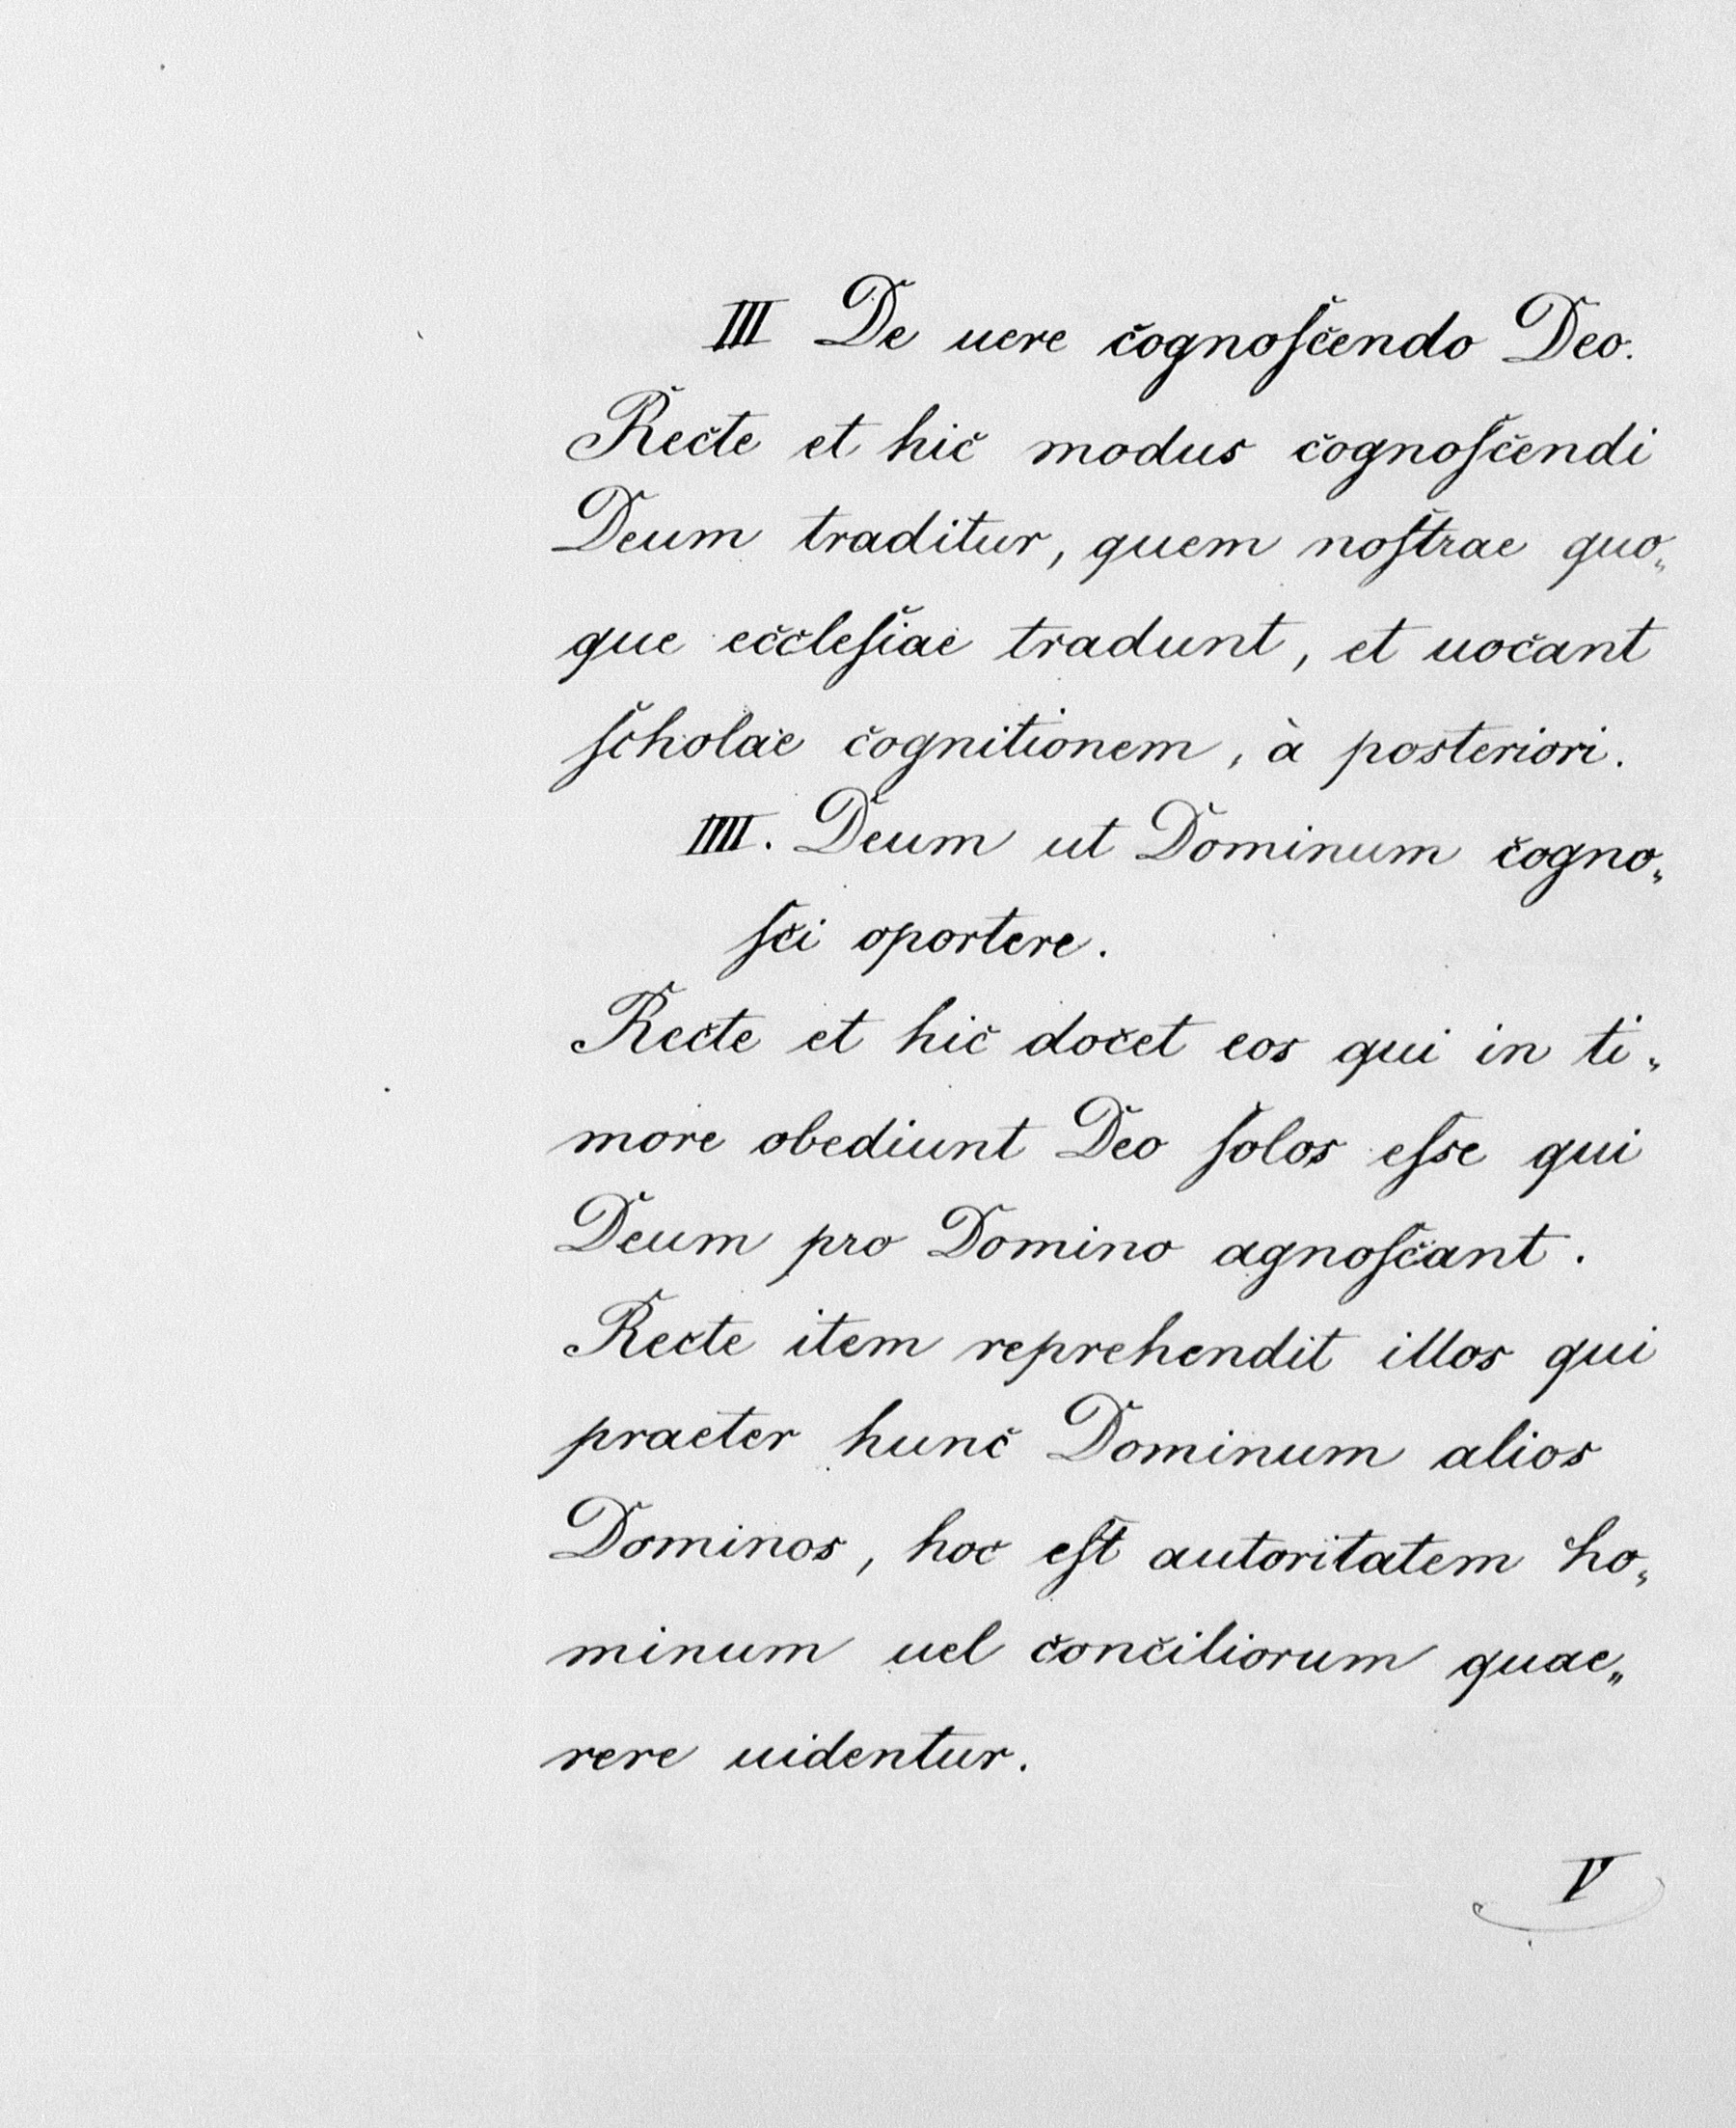 III De uere cognoſcendo Deo.
Recte et hic modus cognoſcendi
Deum traditur, quem noſtrae quo„
que eccleſiae tradunt, et uocant
ſcholae cognitionem, à posteriori.
IIII. Deum ut Dominum cogno„
ſci oportere.
Recte et hic docet eos qui in ti„
more obediunt Deo ſolos eſse qui
Deum pro Domino agnoſcant.
Recte item reprehendit illos qui
praeter hunc Dominum alios
Dominos, hoc eſt autoritatem ho„
minum uel conciliorum quae„
rere uidentur.
V